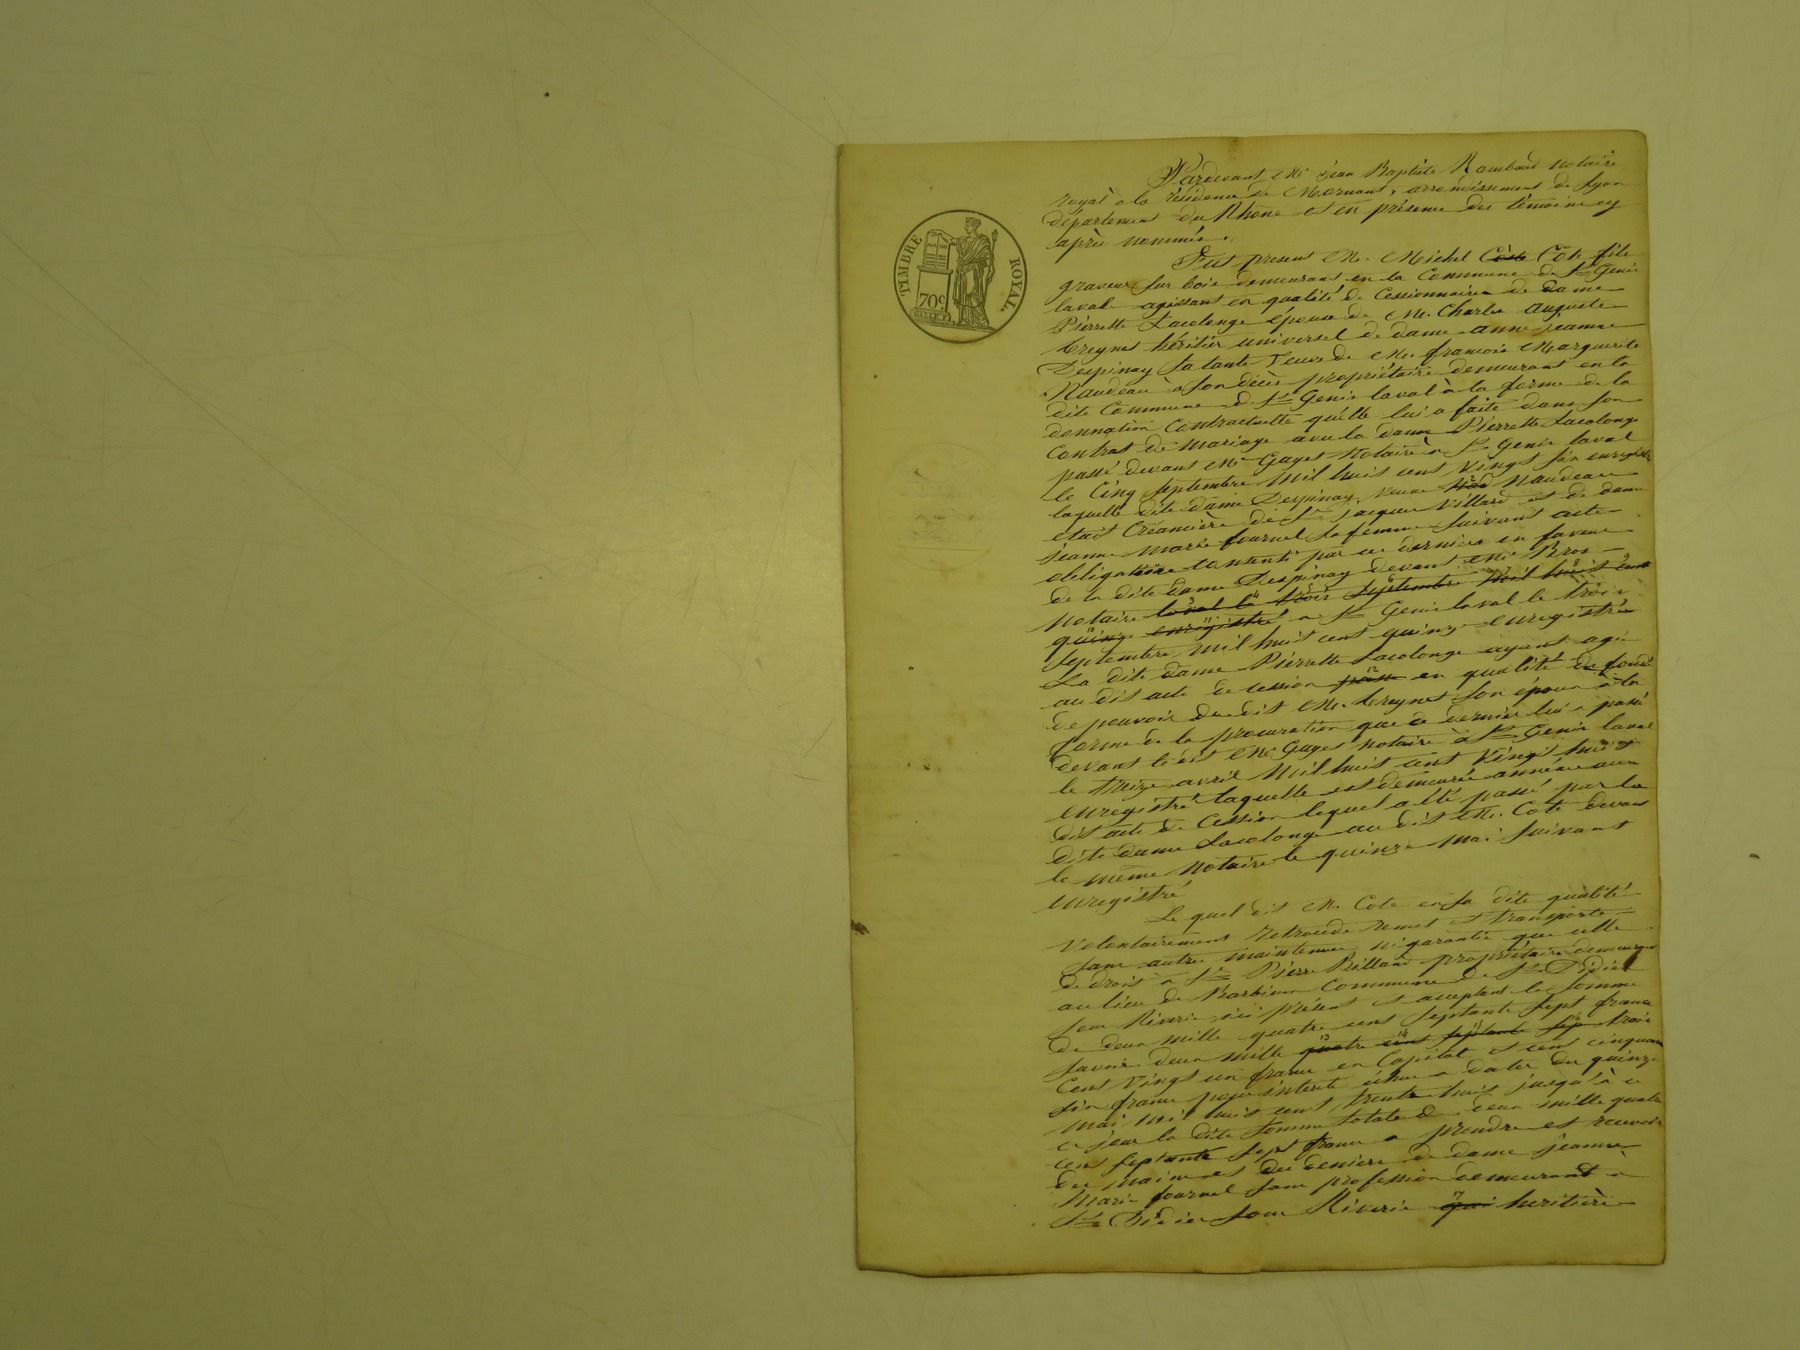 TIMBRE ROYAL
70c.
Pardevant Me jean Baptiste Rambaud notaire
royal à la résidence de Mornant, arrondissement de Lyon
département du Rhône et en présence des témoins cy
après nommés.
Fut present M. Michel Côte Côte fils
graveur sur bois demeurant en la Commune de St Genis
laval agissant en qualité de Cessionnaire de dame
Pierrette Lacolonge épouse de M. Charles auguste
héritier universel de dame anne jeanne
Despinay sa tante veuve de M. francois Marguerite
Naudeau à son décès propriétaire demeurant en la
dite Commune de St Genis laval à la forme de la
donnation Contractuelle qu'elle lui a faite dans son
Contrat de mariage avec la dame Pierrette Lacolonge
passé devant Me Gayet Notaire à St Genis laval
le Cinq septembre mil huit cent vingt six enregistré
laquelle dite dame Despinay veuve Naudeau
était Créancière de Sr jacques Villard et de dame
jeanne marie fournel sa femme suivant acte
obligatoire contenti par ce derniers en faveur
de la dite dame Despinay devant Me Bros
Notaire laval le trois septembre mil huit cent
quinze enregistré a St Genis laval le trois
septembre mil huit cent quinze enregistré
La dite dame Pierrette Lacolonge ayant agi
au dit acte de cession en qualité de fondé
de pouvoir du dit M. son époux à la
forme de la procuration que ce dernier lui a passé
devant le dit Me Gayet notaire à St Genis laval
le treize avril Mil huit cent vingt huit
enregistré laquelle est demeurée annéxée au
dit acte de Cession lequel a été passé par la
dite dame Lacolonge au dit M. Cote devant
le même Notaire le quinze mai suivant
enregistré
Le quel dit M. Cote en sa dite qualité
volontairement retrocède remet et transporte
sans autre maintenue ni garantie que celle
de droit à Sr Pierre Billard propriétaire demeurant
au lieu de Commune de St Didier
sous Riverie ici présent et acceptant la somme
de deux mille quatre cent septante sept francs
savoir deux mille quatre cent septante sep trois
Cent vingt un francs en Capital et cent cinquante
six francs pour intérêt échus a dater du quinze
mai mil huit cent trente huit jusqu'à ce
ce jour la dite somme totale de deux mille quatre
cent septante sept francs a prendre et recevoir
des mains et des deniers de dame jeanne
Marie fournel sans profession demeurant à
St Didier sous Riverie qui heritière